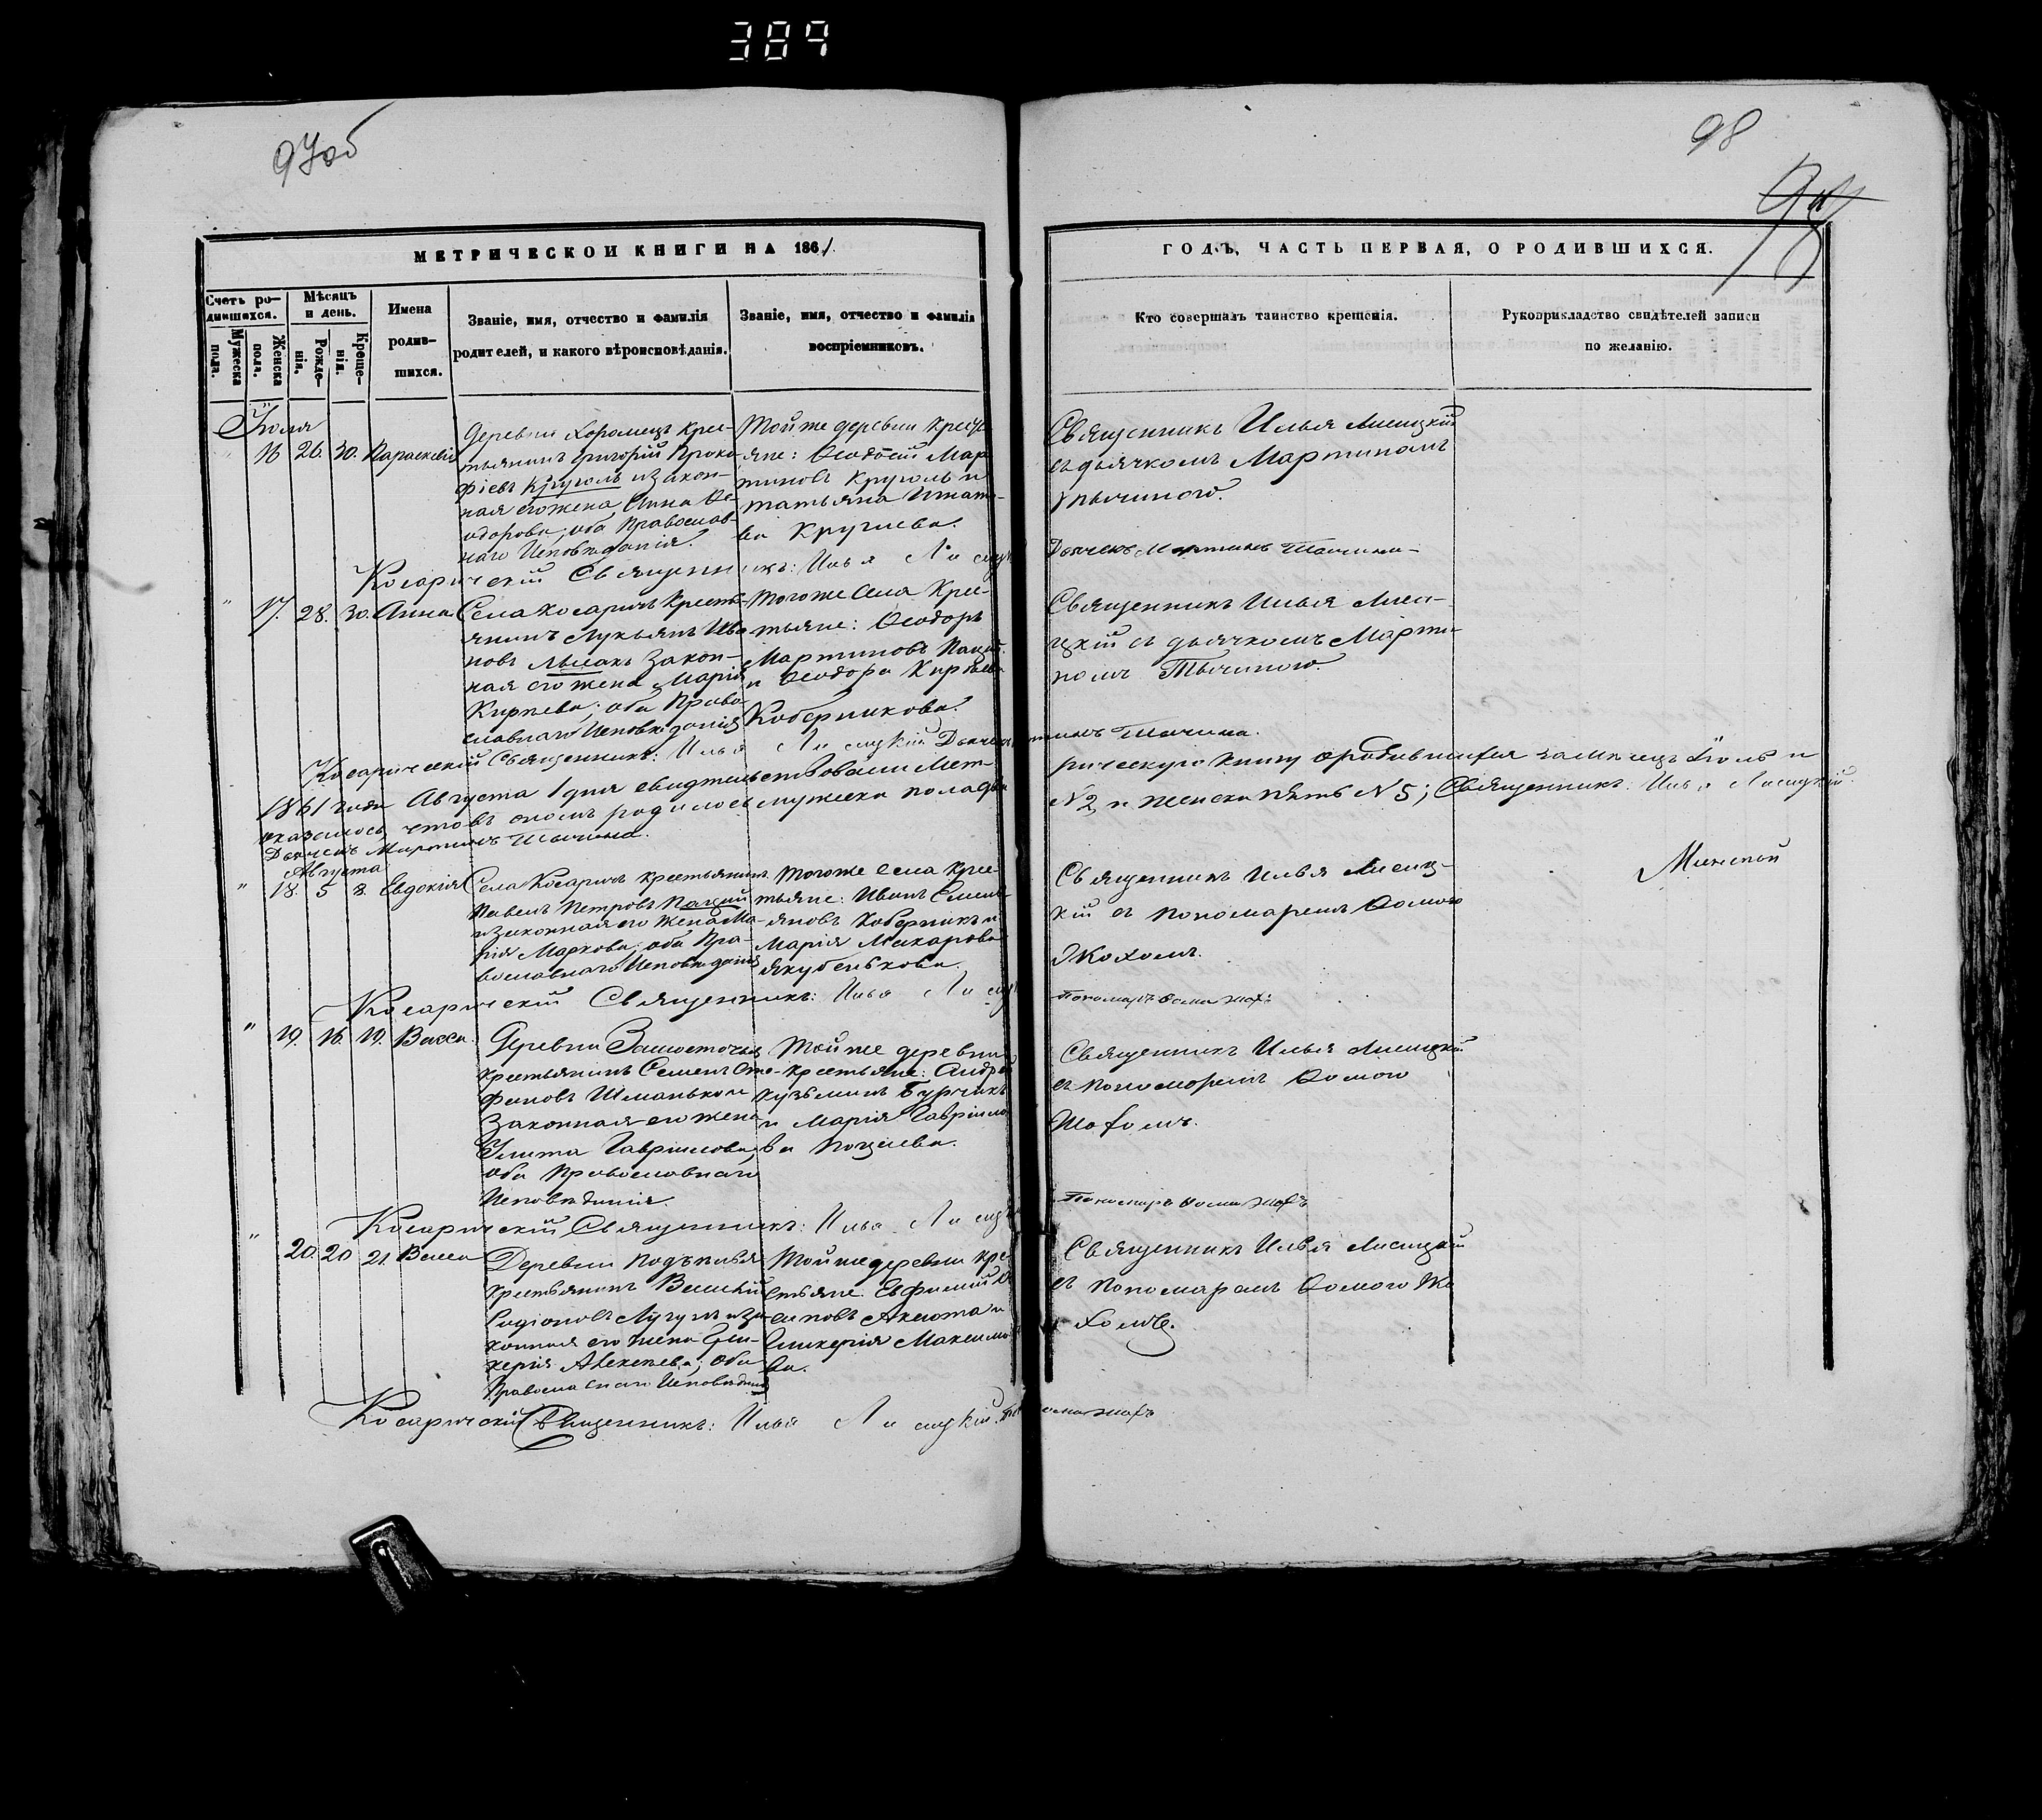 389
97об
98
МЕТРИЧЕСКОЙ КНИГИ НА 1861
ГОДЪ, ЧАСТЬ ПЕРВАЯ, О РОДИВШИХСЯ.
Счетъ ро-
дившихся.
Мужеска
пола.
Женска
пола.
Мѣсяцъ
и день.
Рожде-
нія.
Креще-
нія.
Имена
родив-
шихся.
Званіе, имя, отчество и фамилія
родителей, и какого вѣроисповѣданія.
Званіе, имя, отчество и фамилія
воспріемниковъ.
Кто совершалъ таинство крещенія.
Рукоприкладство свидѣтелей записи
по желанію.
Іюля
16 26. 30. Параскевія
Деревни Хоромецъ крес-
тьянинъ Григорій Проко
фіевъ Кругль и закон-
ная его жена Анна Ѳе-
одорова, оба Православ-
наго Исповѣданія.
Той же деревни крест
яне: Ѳеодосій Мар
тиновъ Кругль и
Татьяна Игнать-
ва Круглева.
Священникъ Илья Лисицкій
съ дьячкомъ Мартиномъ
Тычиною.
Косарическій Священникъ: Илья Лисицкій
Дьячекъ Мартинъ Тычина
" 17. 28. 30. Анна
Села Косаричъ Кресть-
янинъ Лукьянъ Ива
новъ Лысакъ Закон-
ная его жена Марія
Кирѣева, оба Право
славнаго Исповѣданія
Того же Села Крес-
тьяне: Ѳеодоръ
Мартиновъ Пацѣй
и Ѳеодора Кирѣева
Коберникова.
Священникъ Илья Лиси-
цкій съ дьячкомъ Марти-
номъ Тычиною.
Косарическій Священникъ: Илья Лисицкій Дьячекъ Мартинъ Тычина.
1861 года Августа 1 дня свидѣтельствовали Мет-
рическую книгу о родившихся за мѣсяцъ Іюль и
оказалось, что въ ономъ родилось мужеска пола два
№ 2, и женска пять № 5; Священникъ: Илья Лисицкій.
Дьячекъ Мартинъ Тычина.
Августа
" 18. 5 8. Евдокія
Села Косаричъ крестьянинъ
Павелъ Петровъ Пацѣй
и законная его жена Ма-
рія Маркова, оба Пра-
вославнаго Исповѣданія
Того же Села Крес-
тьяне: Иванъ Емель-
яновъ Коберникъ и
Марія Макарова
Якубенькова.
Священникъ Илья Лисиц-
кій съ пономаремъ Ѳомою
Жохомъ.
Минской
Косарическій Священникъ: Илья Лисицкій
Пономарь Ѳома Жохъ
" 19. 16. 19. Васса.
Деревни Заласточья
крестьянинъ Семенъ Сте-
фановъ Шманько и
Законная его жена
Улита Гавріилова,
оба Православнаго
Исповѣданія.
Той же деревни
крестьяне: Андрей
Кузьминъ Бурчикъ
и Марія Гаврило
ва Поцѣева.
Священникъ Илья Лисицкій
съ пономаремъ Ѳомою
Жохомъ.
Косарическій Священникъ: Илья Лисицкій
Пономарь Ѳома Жохъ
" 20. 20 21. Васса
Деревни Подъилья
крестьянинъ Василій
Родіоновъ Лугумъ и за
конная его жена Гли-
керія Алексеева; оба
Православнаго Исповѣданія
Той же деревни кре
стьяне: Евфимій
Аксюта и
Гликерія Максимо
ва.
Священникъ Илья Лисицкій
съ пономаремъ Ѳомою Жо
хомъ.
Косарическій Священникъ: Илья Лисицкій. Ѳома Жохъ